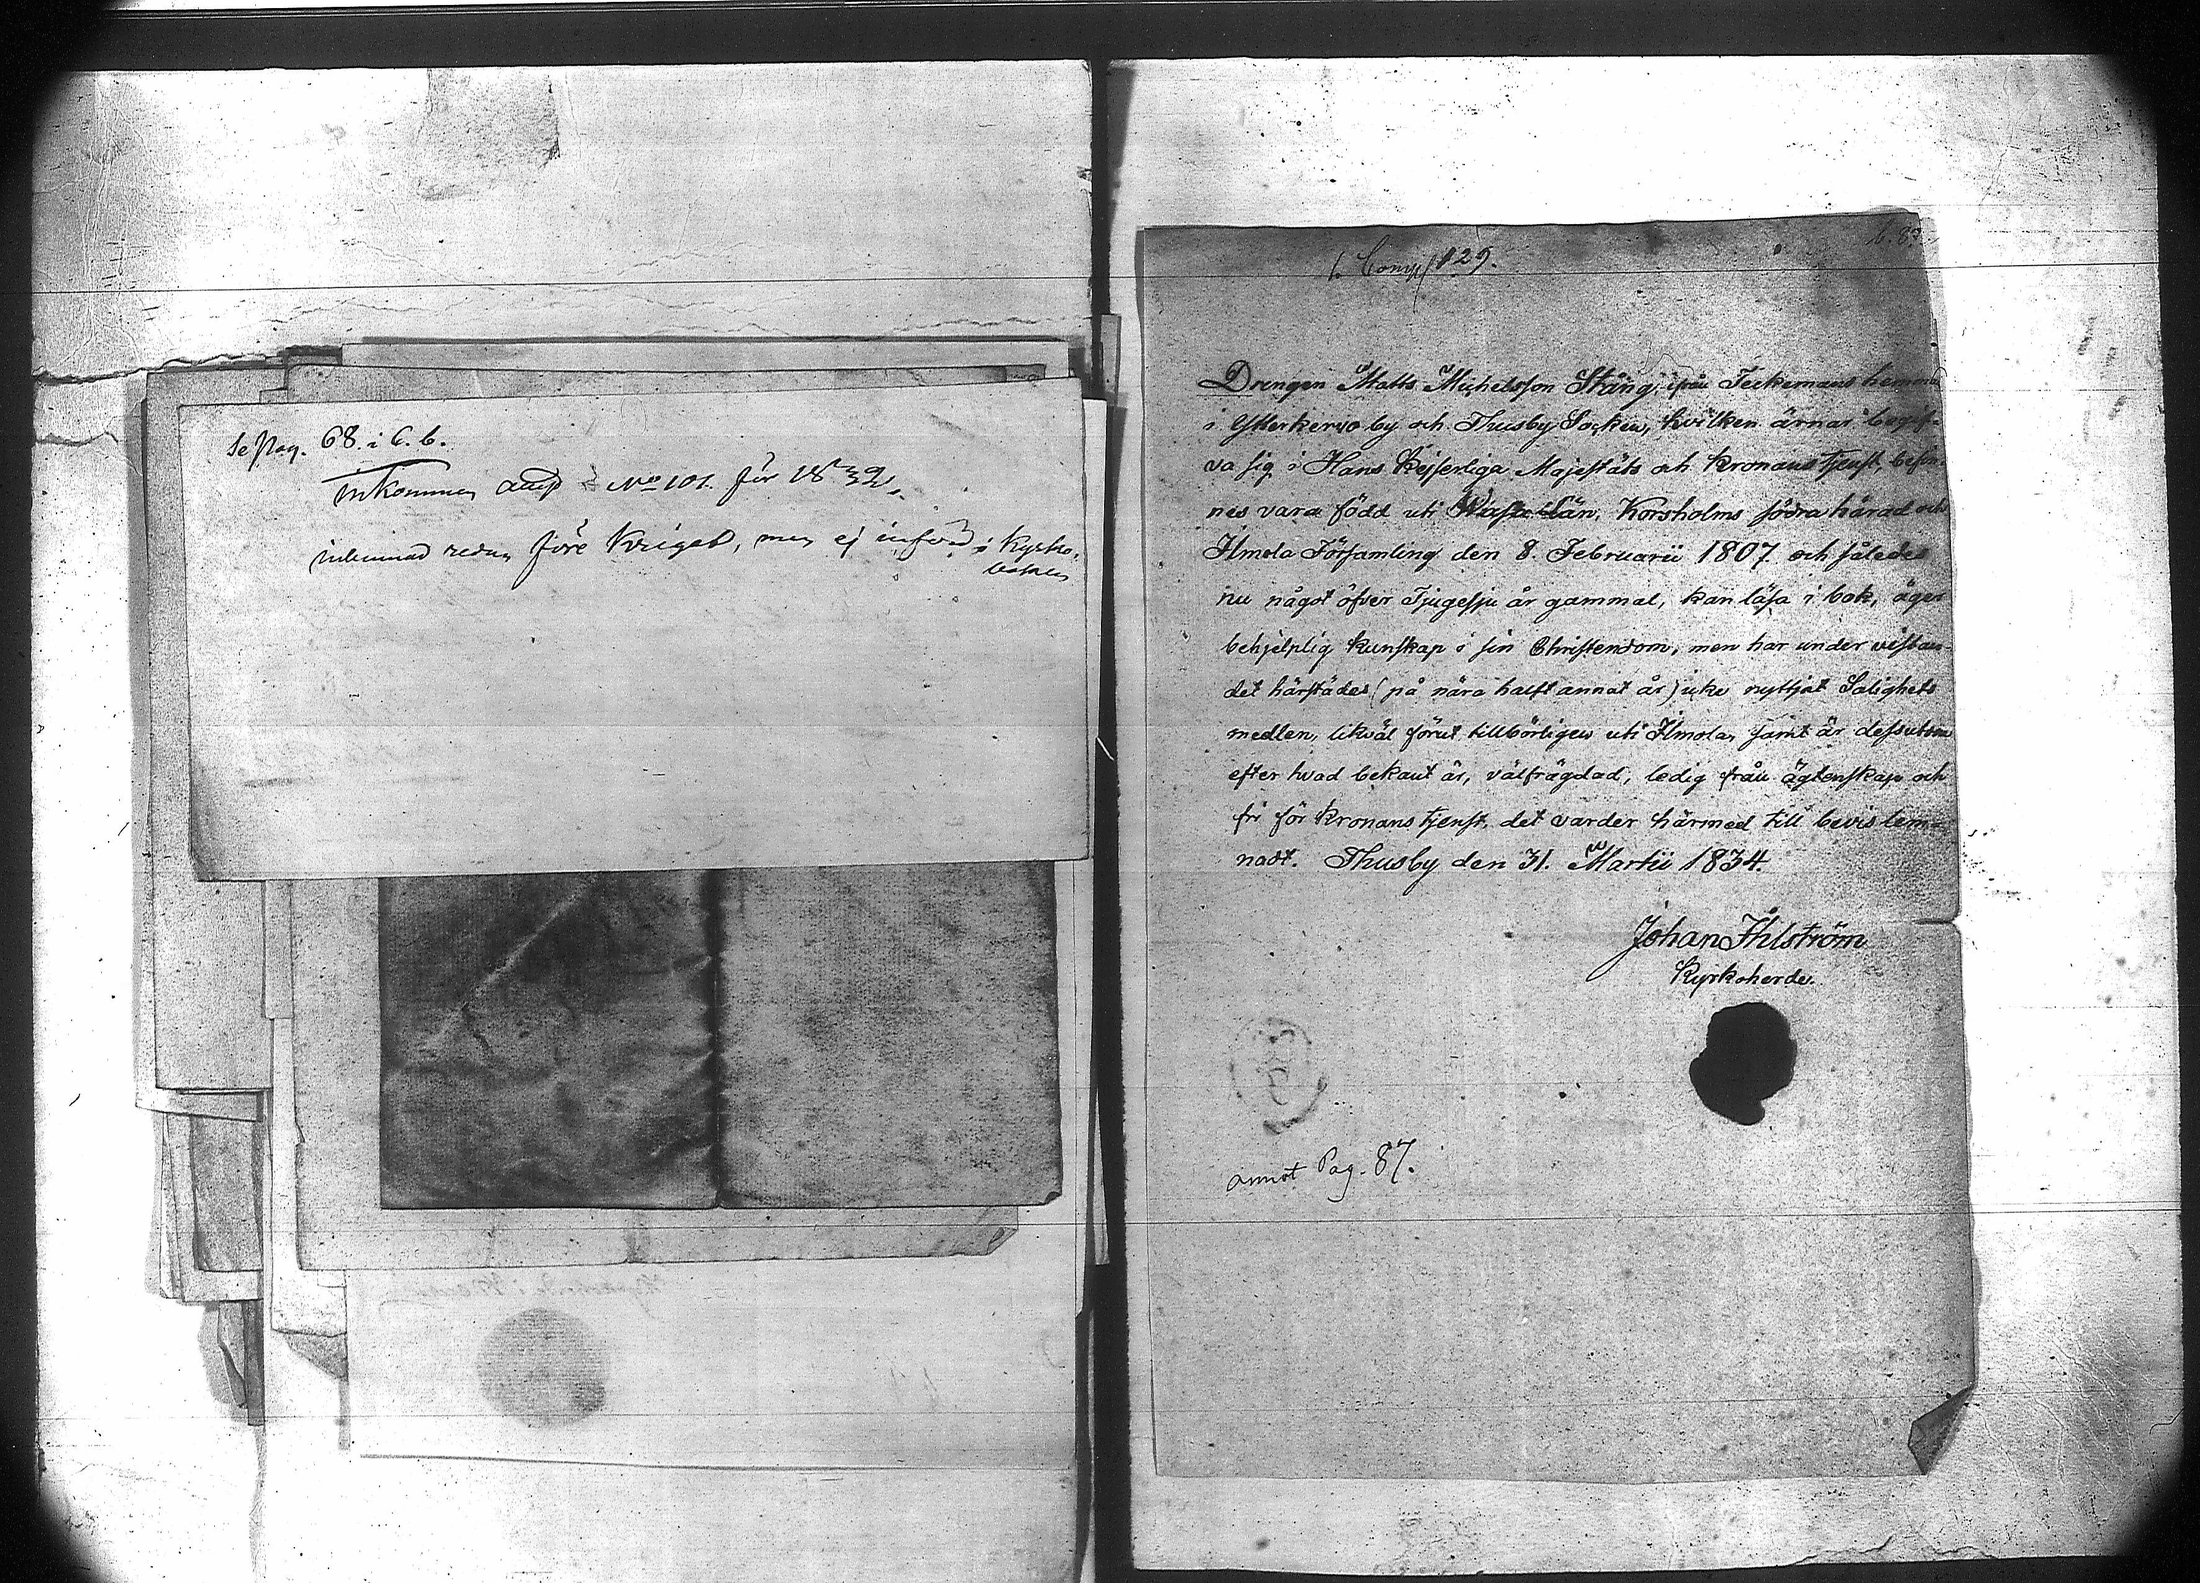 Se Pag. 68. i C. b.
inkommen No 101. för 1832.
inlemnad redan före Kriget, men ej införd i Kyrko-
boken
1. Comp 129.
b. 83.
Drengen Matts Michelsson Stång, ifrån Teckemans hemma
i Ytterkervo by och Thusby Socken, hvilken ärnar begif-
va sig i Hans Kejserliga Majestäts och Kronans tjenst, befin-
nes vara född uti Wasa Län, Korsholms södra härad och
Ilmola Församling den 8. Februarii 1807. och således
nu något öfver Tjugesju år gammal, kan läsa i bok, äger
behjelplig kunskap i sin Christendom, men har under vistan-
det härstädes (på nära halft annat år) icke nyttjat Salighets
medlen, likväl förut tillbörligen uti Ilmola, samt är dessutom
efter hvad bekant är, välfrägdad, ledig från ägtenskap och
fri för Kronans tjenst, det varder härmed till bevis lem-
nadt. Thusby den 31. Martii 1834.
Johan Åhlström
Kyrkoherde.
annot Pag. 87.